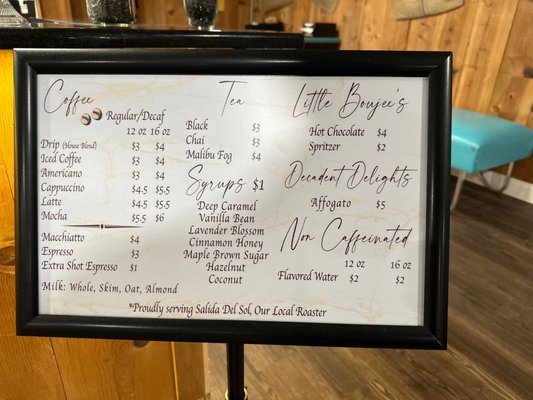 Coffee
Regular/Decaf
12 oz 16 oz
Drip (House Blend) $3 $4
Iced Coffee $3 $4
Americano $3 $4
Cappuccino $4.5 $5.5
Latte $4.5 $5.5
Mocha $5.5 $6
Macchiatto $4
Espresso $3
Extra Shot Espresso $1
Milk: Whole, Skim, Oat, Almond
Tea
Black $3
Chai $3
Malibu Fog $4
Syrups $1
Deep Caramel
Vanilla Bean
Lavender Blossom
Cinnamon Honey
Maple Brown Sugar
Hazelnut
Coconut
Little Boujee's
Hot Chocolate $4
Spritzer $2
Decadent Delights
Affogato $5
Non Caffeinated
12 oz 16 oz
Flavored Water $2 $2
*Proudly serving Salida Del Sol, Our Local Roaster